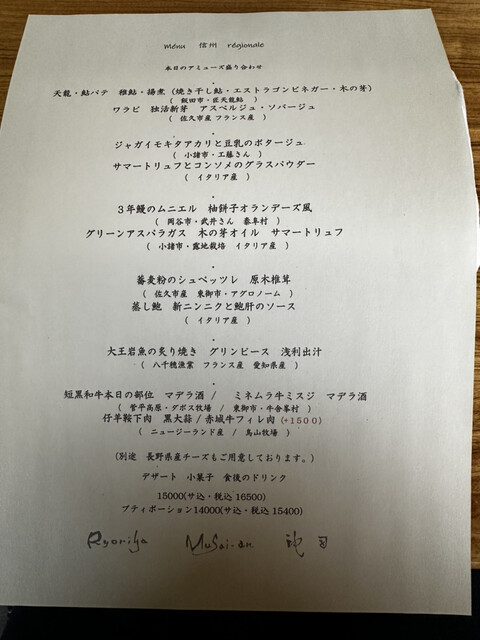 Menu 信州 régionale
本日のアミューズ盛り合わせ
・
天龍・鮎パテ 稚鮎・揚煮 (焼き干し鮎・エストラゴンビネガー・木の芽)
( 飯田市・匠天龍鮎 )
ワラビ 独活新芽 アスペルジュ・ソバージュ
( 佐久市産 フランス産 )
・
ジャガイモキタアカリと豆乳のポタージュ
( 小諸市・工藤さん )
サマートリュフとコンソメのグラスパウダー
( イタリア産 )
・
3年鰻のムニエル 柚餅子オランデーズ風
( 岡谷市・武井さん 泰阜村 )
グリーンアスパラガス 木の芽オイル サマートリュフ
( 小諸市・露地栽培 イタリア産 )
・
蕎麦粉のシュペッツレ 原木椎茸
( 佐久市産 東御市・アグロノーム )
蒸し鮑 新ニンニクと鮑肝のソース
( イタリア産 )
・
大王岩魚の炙り焼き グリンピース 浅利出汁
( 八千穂漁業 フランス産 愛知県産 )
・
短黒和牛本日の部位 マデラ酒 / ミネムラ牛ミスジ マデラ酒
( 菅平高原・ダボス牧場 / 東御市・牛舎峯村 )
仔羊鞍下肉 黒大蒜/赤城牛フィレ肉 (+1500)
( ニュージーランド産 / 鳥山牧場 )
(別途 長野県産チーズもご用意しております。)
デザート 小菓子 食後のドリンク
15000(サ込・税込 16500)
プティポーション14000(サ込・税込 15400)
Ryoriya Musai-an